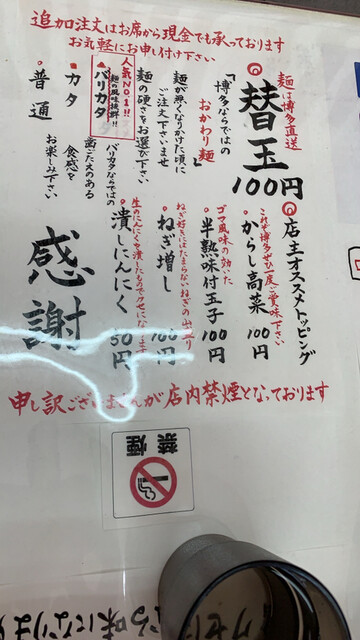 追加注文はお席から現金でも承っております
お気軽にお申し付け下さい
麺は博多直送
◎替玉
100円
「博多ならではの
おかわり麺」
麺が無くなりかけた頃に
ご注文下さいませ
麺の硬さをお選び下さい
人気NO.1!!
麺の風味抜群!!
バリカタ
バリカタならではの
歯ごたえのある
食感を
お楽しみ下さい
カタ
普通
◎店主オススメトッピング
これぞ博多ぜひ一度ご賞味下さい
・からし高菜 100円
ゴマ風味の効いた
・半熟味付玉子 100円
ねぎ好きにはたまらないねぎの山盛り
・ねぎ増し 100円
生のにんにくを潰したものでクセになります
・潰しにんにく 50円
感謝
申し訳ございませんが店内禁煙となっております
禁煙